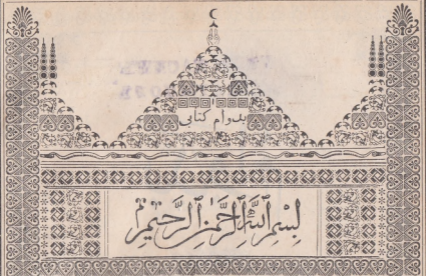 بدوام كتابى
بسم الله الرحمن الرحيم